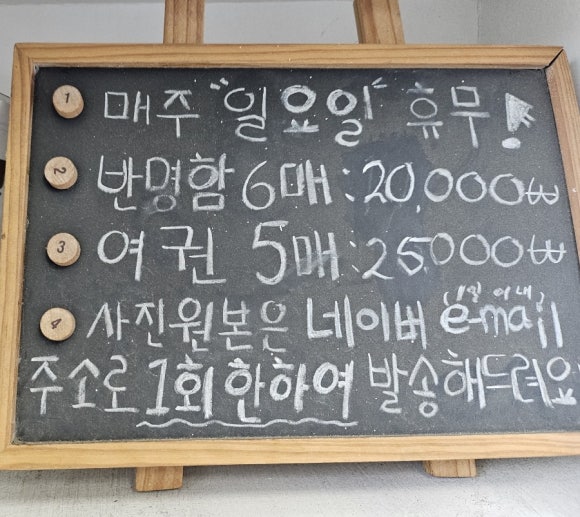 1 매주 "일요일" 휴무!
2 반명함 6매 : 20,000₩
3 여권 5매 : 25,000₩
(1일 이내)
4 사진원본은 네이버 e-mail
주소로 1회 한하여 발송해드려요